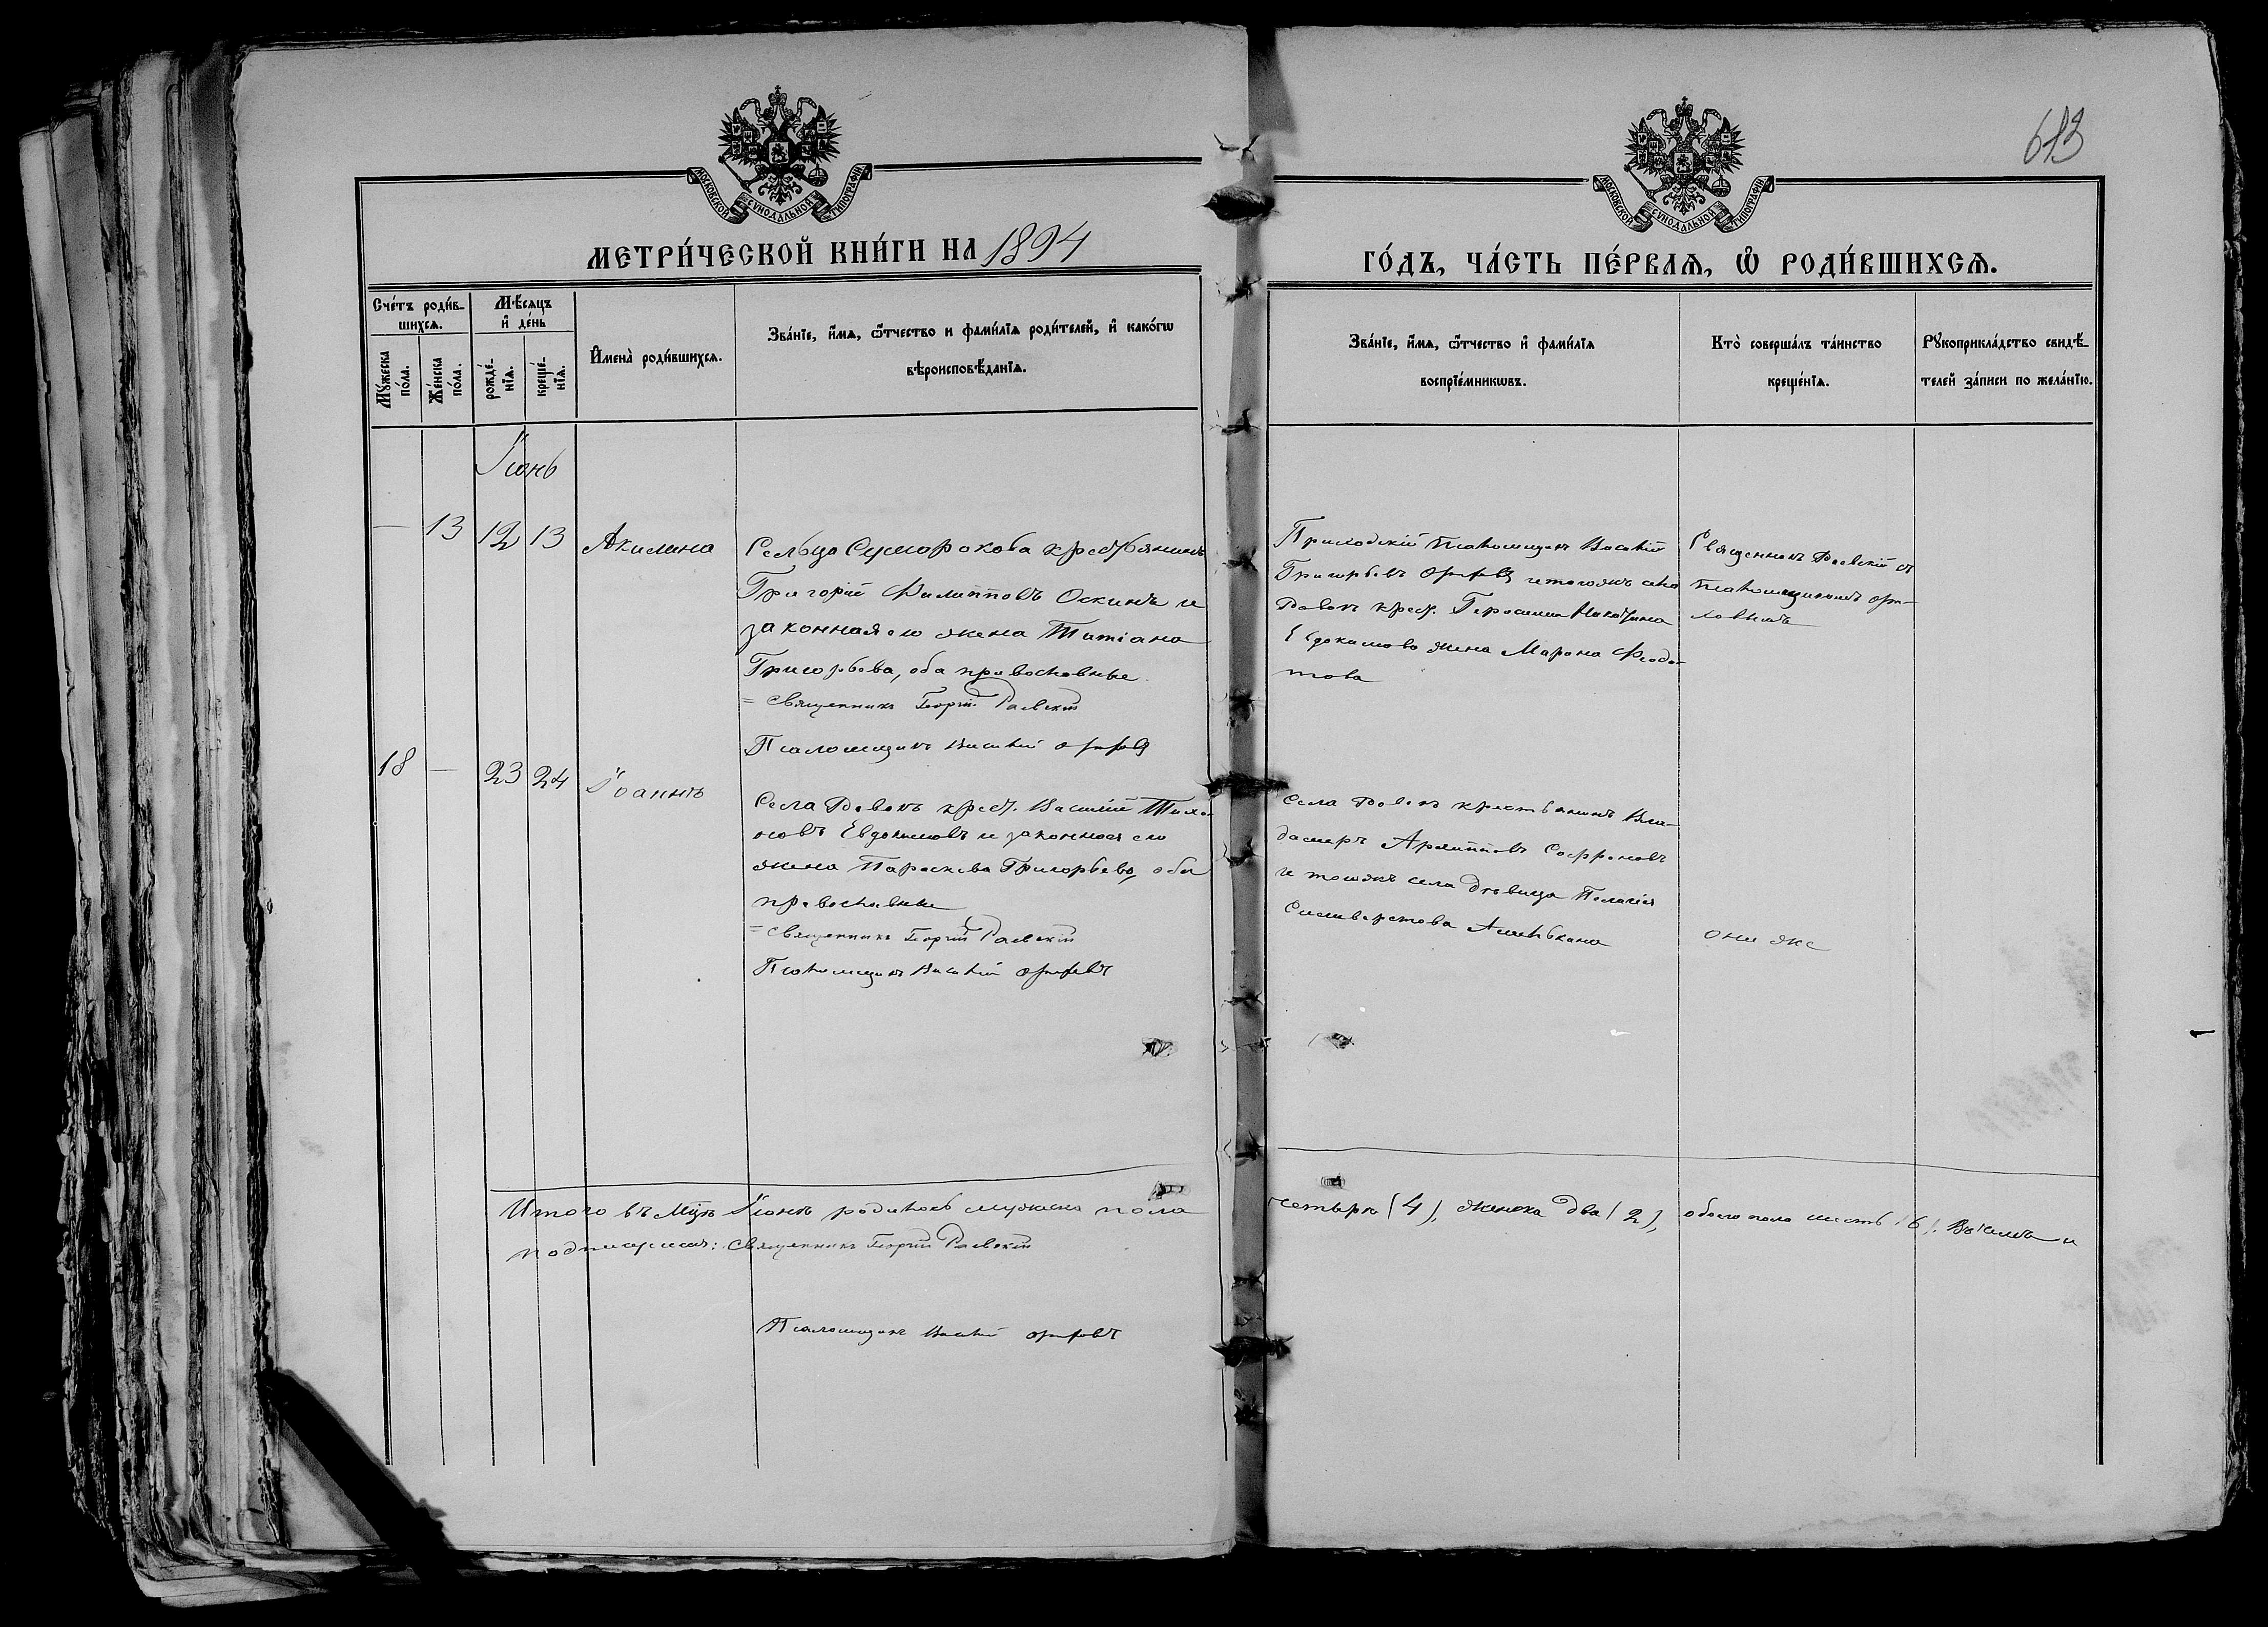 613
МОСКОВСКОЙ СУНОДАЛЬНОЙ ТИПОГРАФІИ
МОСКОВСКОЙ СУНОДАЛЬНОЙ ТИПОГРАФІИ
МЕТРИ́ЧЕСКОЙ КНИ́ГИ НА 1894
ГО́ДЪ, ЧА́СТЬ ПЕ́РВАѦ, Ѡ҆ РОДИ́ВШИХСѦ.
Сче́тъ роди́в-
шихсѧ.
Мꙋ́жеска
по́ла.
Же́нска
по́ла.
Мѣ́сѧцъ
и҆ де́нь
рожде́-
нїѧ.
креще́-
нїѧ.
И҆мена̀ роди́вшихсѧ.
Зва́нїе, и҆́мѧ, ѻ҆́тчество и фами́лїѧ роди́телей, и҆ како́гѡ
вѣроисповѣ́данїѧ.
Зва́нїе, и҆́мѧ, ѻ҆́тчество и҆ фами́лїѧ
воспрїе́мникѡвъ.
Кто̀ соверша́лъ та́инство
креще́нїѧ.
Рꙋкоприкла́дство свидѣ́-
телей за́писи по жела́нїю.
Іюнь
— 13 12 13 Акилина
Сельца Сумарокова крестьянинъ
Григорій Филипповъ Оскинъ и
законная его жена Татіана
Григорьева, оба православные
= Священникъ Георгій Раевскій
Псаломщикъ Василій
Приходскій Псаломщикъ Василій
Григорьевъ и тогожъ села
крест. Герасима Никитина
Евдокимова жена Марѳа Ѳедо-
това
Священникъ Раевскій съ
Псаломщикомъ Ор-
ловымъ
18 — 23 24 Іоаннъ
Села крест. Василій Тихо-
новъ Евдокимовъ и законная его
жена Параскева Григорьева, оба
православные
= Священникъ Георгій Раевскій
Псаломщикъ Василій
Села крестьянинъ Вла-
димиръ Архиповъ Софроновъ
и тогожъ села дѣвица Пелагія
Сильверстова
они же
Итого въ Мцѣ Іюнѣ родилось мужеска пола четыре (4), женска два (2), обоего пола шесть (6). и
подписуемся: Священникъ Георгій Раевскій
Псаломщикъ Василій